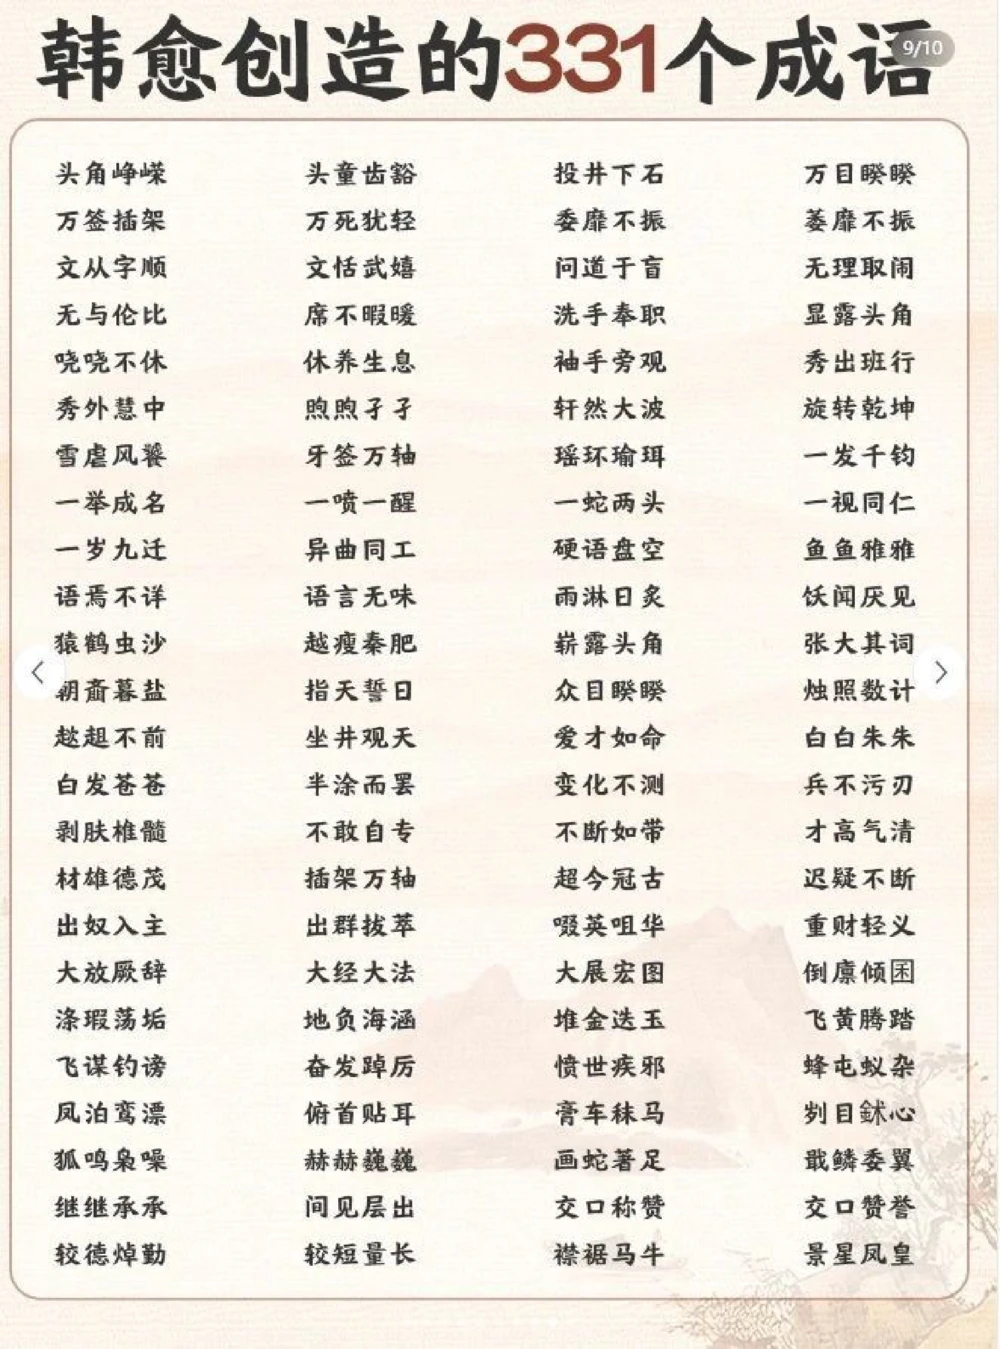 韩愈创造的331个成语
9/10
头角峥嵘 头童齿豁 投井下石 万目睽睽
万签插架 万死犹轻 委靡不振 萎靡不振
文从字顺 文恬武嬉 问道于盲 无理取闹
无与伦比 席不暇暖 洗手奉职 显露头角
哓哓不休 休养生息 袖手旁观 秀出班行
秀外慧中 煦煦孑孑 轩然大波 旋转乾坤
雪虐风饕 牙签万轴 瑶环瑜珥 一发千钧
一举成名 一喷一醒 一蛇两头 一视同仁
一岁九迁 异曲同工 硬语盘空 鱼鱼雅雅
语焉不详 语言无味 雨淋日炙 饫闻厌见
猿鹤虫沙 越瘦秦肥 崭露头角 张大其词
朝齑暮盐 指天誓日 众目睽睽 烛照数计
趑趄不前 坐井观天 爱才如命 白白朱朱
白发苍苍 半涂而罢 变化不测 兵不污刃
剥肤椎髓 不敢自专 不断如带 才高气清
材雄德茂 插架万轴 超今冠古 迟疑不断
出奴入主 出群拔萃 啜英咀华 重财轻义
大放厥辞 大经大法 大展宏图 倒廪倾囷
涤瑕荡垢 地负海涵 堆金迭玉 飞黄腾踏
飞谋钓谤 奋发踔厉 愤世疾邪 蜂屯蚁杂
凤泊鸾漂 俯首贴耳 膏车秣马 刿目鉥心
狐鸣枭噪 赫赫巍巍 画蛇著足 戢鳞委翼
继继承承 间见层出 交口称赞 交口赞誉
较德焯勤 较短量长 襟裾马牛 景星凤皇